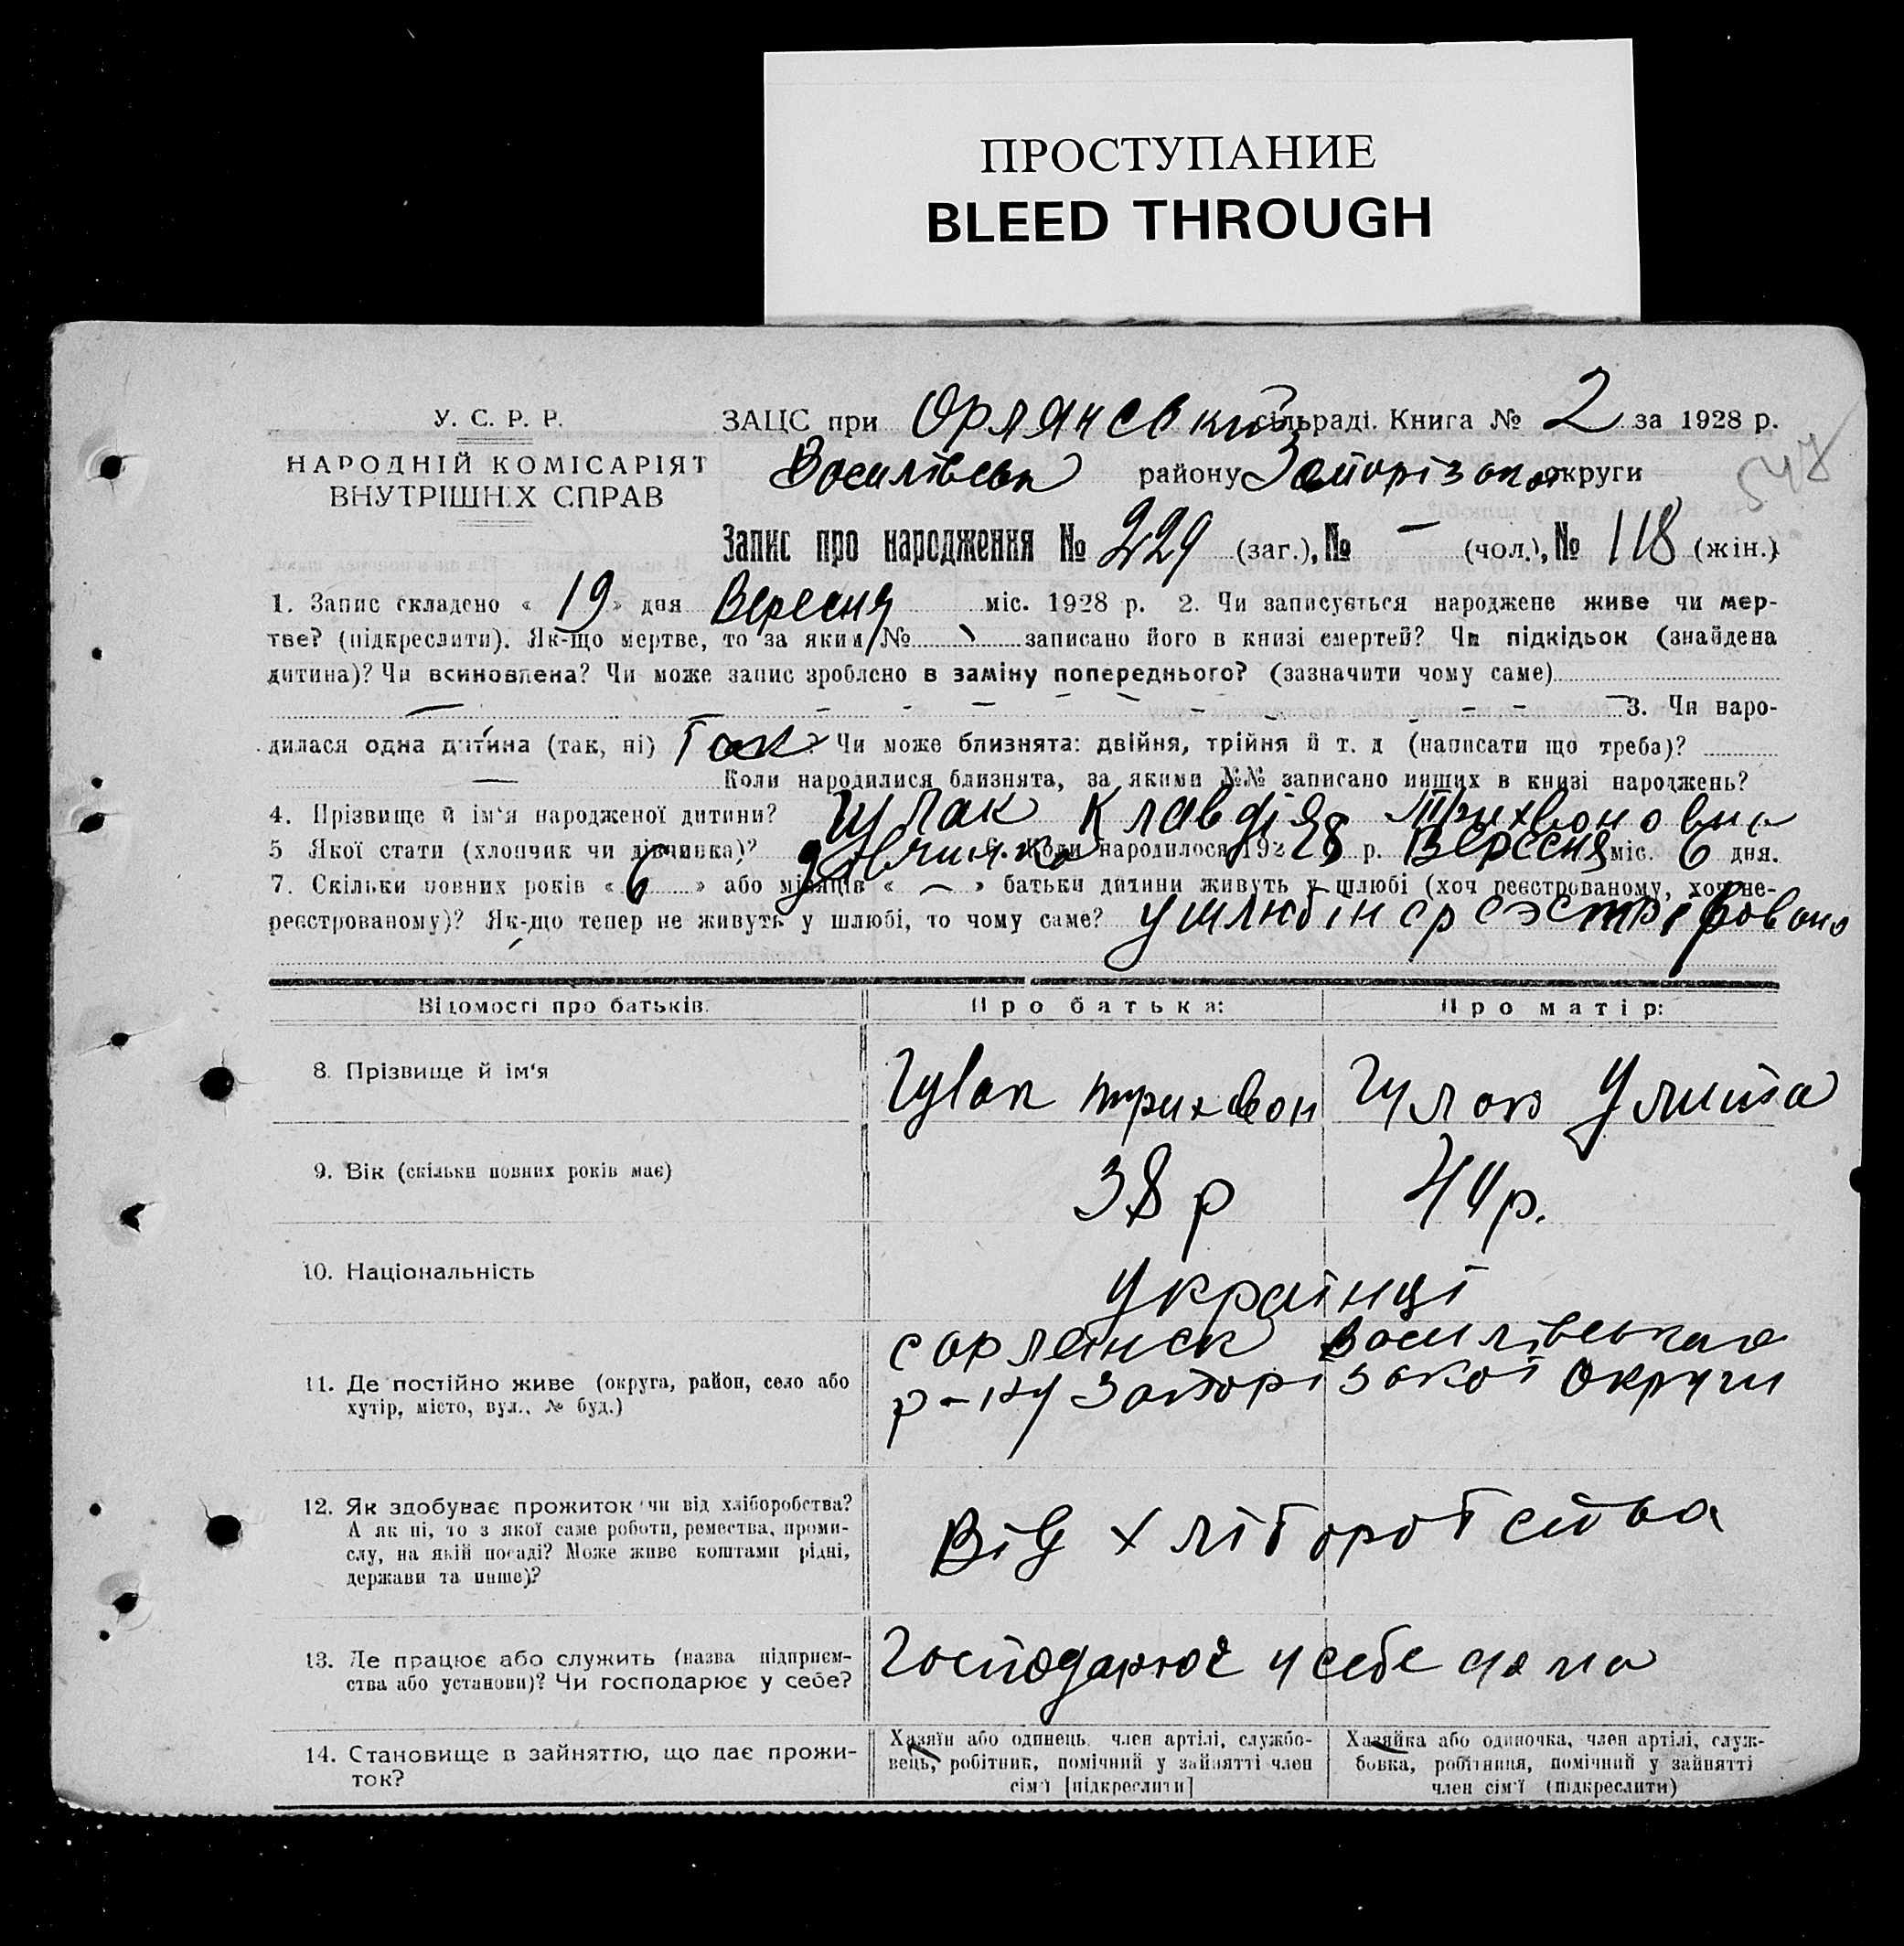 ПРОСТУПАНИЕ
BLEED THROUGH
У. С. Р. Р.
НАРОДНІЙ КОМІСАРІЯТ
ВНУТРІШНІХ СПРАВ
ЗАЦС при Орлянській сільраді. Книга № 2 за 1928 р.
Василівськ району Запорізької округи
548
Запис про народження № 229 (заг.), № – (чол.), № 118 (жін.)
1. Запис складено « 19 » дня Вересня міс. 1928 р. 2. Чи записується народжене живе чи мер-
тве? (підкреслити). Як-що мертве, то за яким № записано його в книзі смертей? Чи підкідьок (знайдена
дитина)? Чи всиновлена? Чи може запис зроблено в заміну попереднього? (зазначити чому саме)
3. Чи наро-
дилася одна дитина (так, ні) Так Чи може близнята: двійня, трійня й т. д (написати що треба)?
— Коли народилися близнята, за якими №№ записано инших в книзі народжень?
4. Прізвище й ім'я народженої дитини? Гулак Клавдія Трихвоновна
5 Якої стати (хлопчик чи дівчинка)? дівчинка 6. Коли народилося 1928 р. Вересня міс. 6 дня.
7. Скільки повних років « 6 » або місяців « – » батьки дитини живуть у шлюбі (хоч реєстрованому, хоч не-
реєстрованому)? Як-що тепер не живуть у шлюбі, то чому саме? у шлюбі
Відомості про батьків. Про батька: Про матір:
8. Прізвище й ім'я Гулак Трихвон Гулак Улита
9. Вік (скільки повних років має) 38 р 44 р.
10. Національність Українці
11. Де постійно живе (округа, район, село або
хутір, місто, вул., № буд.)
с Орлянск Василівського
р-ну Запорізької Округи
12. Як здобуває прожиток чи від хліборобства?
А як ні, то з якої саме роботи, ремества, проми-
слу, на якій посаді? Може живе коштами рідні,
держави та инше)?
Від хліборобства
13. Де працює або служить (назва підприєм-
ства або установи)? Чи господарює у себе?
Господарює у себе дома
14. Становище в зайняттю, що дає прожи-
ток?
Хазяїн або одинець, член артілі, службо-
вець, робітник, помічний у зайнятті член
сім'ї [підкреслити]
Хазяйка або одиночка, член артілі, служ-
бовка, робітниця, помічний у зайнятті
член сім'ї (підкреслити)